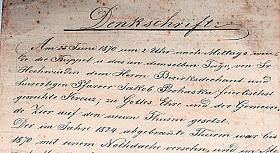 Denkschrift.
Am 25 Juni 1870 um 2 Uhr nach Mittags wur
de die Kuppel u das an demselben Tage, von Sr
Hochwürden dem Herrn Bezirksdechant und
hierortigen Pfarrer Jakob Prohaska feierlichst
geweihte Kreuz, zu Gottes Ehre und der Gemein
de Zier auf den neuen Thurm gesetzt.
Der im Jahre 1824 abgebrannte Thurm war bis
1870 mit einem Nothdache versehen, und im